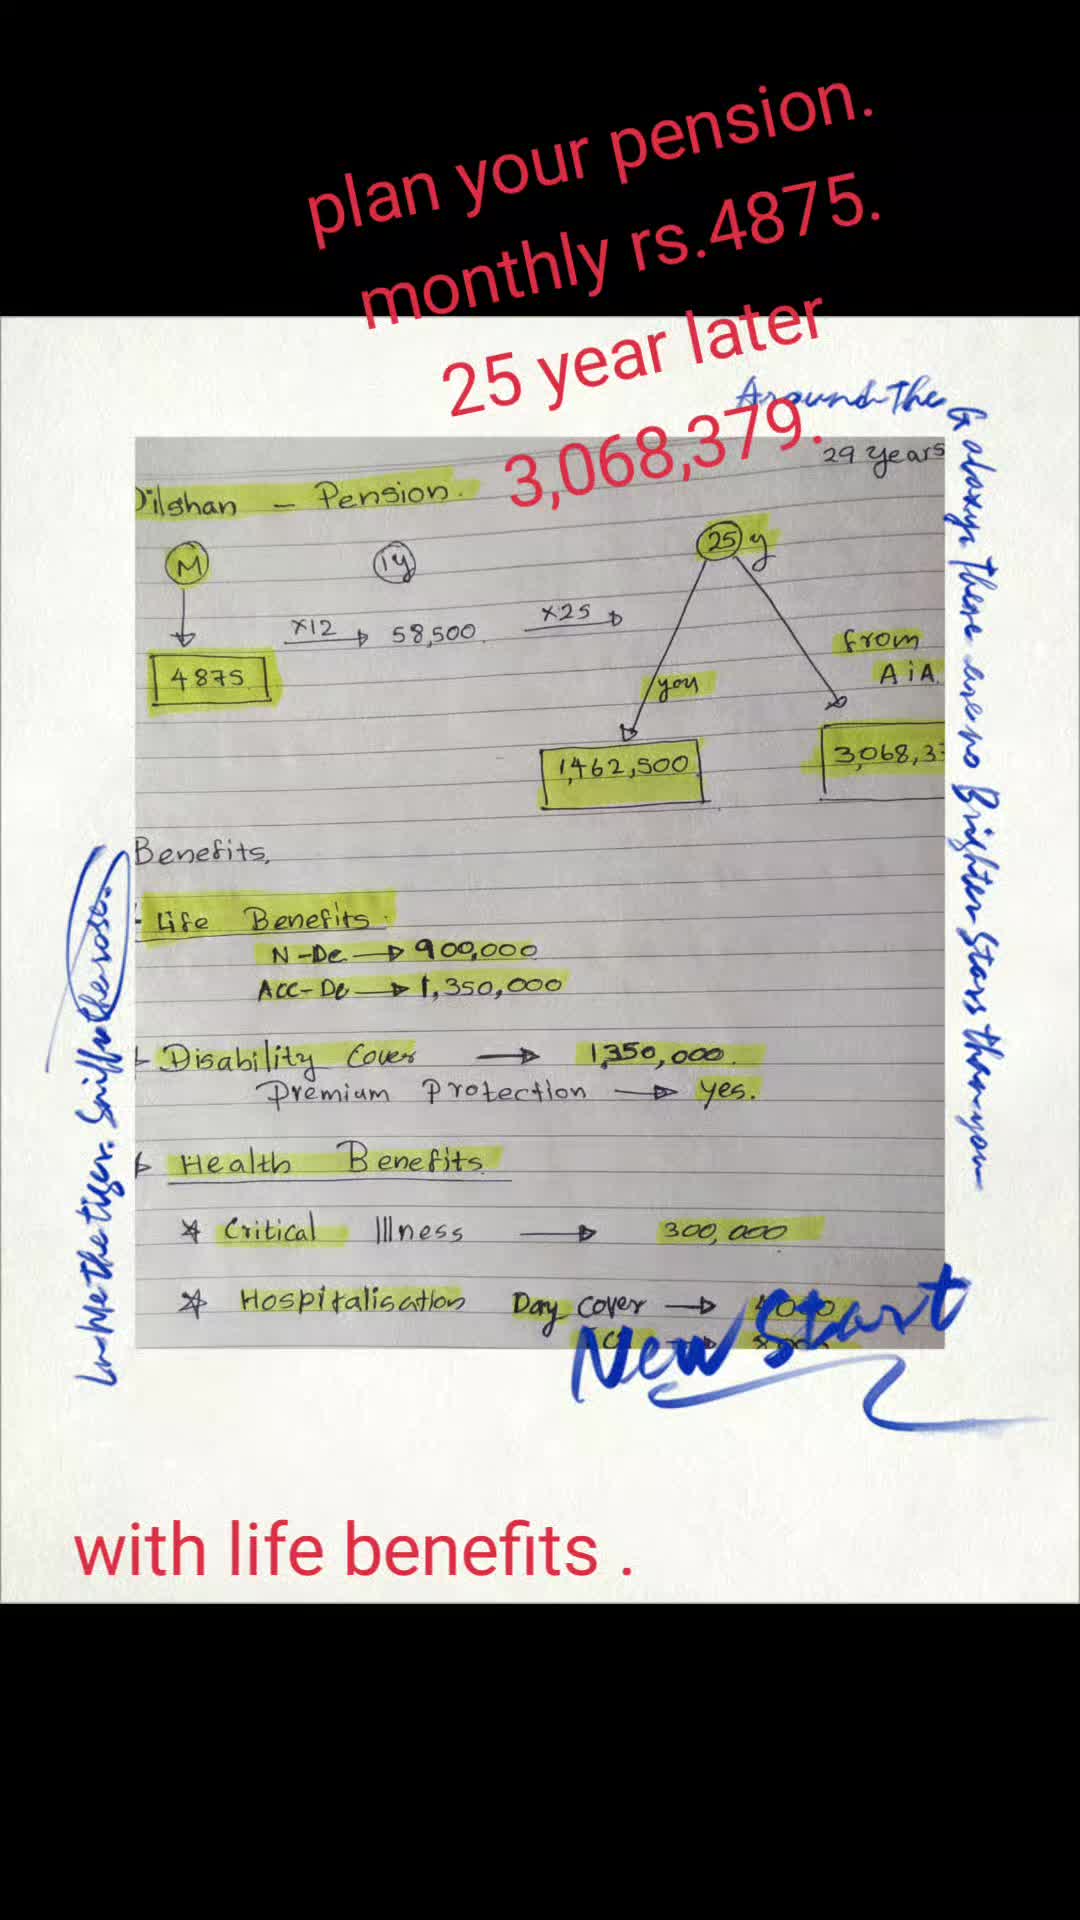 plan your pension.
monthly rs.4875.
25 year later
3,068,379.
Around the
Galaxy, There are no Brighter Stars than you
29 years
Dilshan - Pension.
M
1y
25 y
×12
58,500.
×25
from
AiA.
4875
you
1,462,500
3,068,3
Benefits,
Life Benefits.
N-De → 900,000
Acc-De → 1,350,000
Disability Cover → 1,350,000.
Premium Protection → yes.
Health Benefits.
* Critical Illness → 300,000
* Hospitalisation Day cover → 4000
In Me the tiger. Sniffs the rose.
New Start
with life benefits .